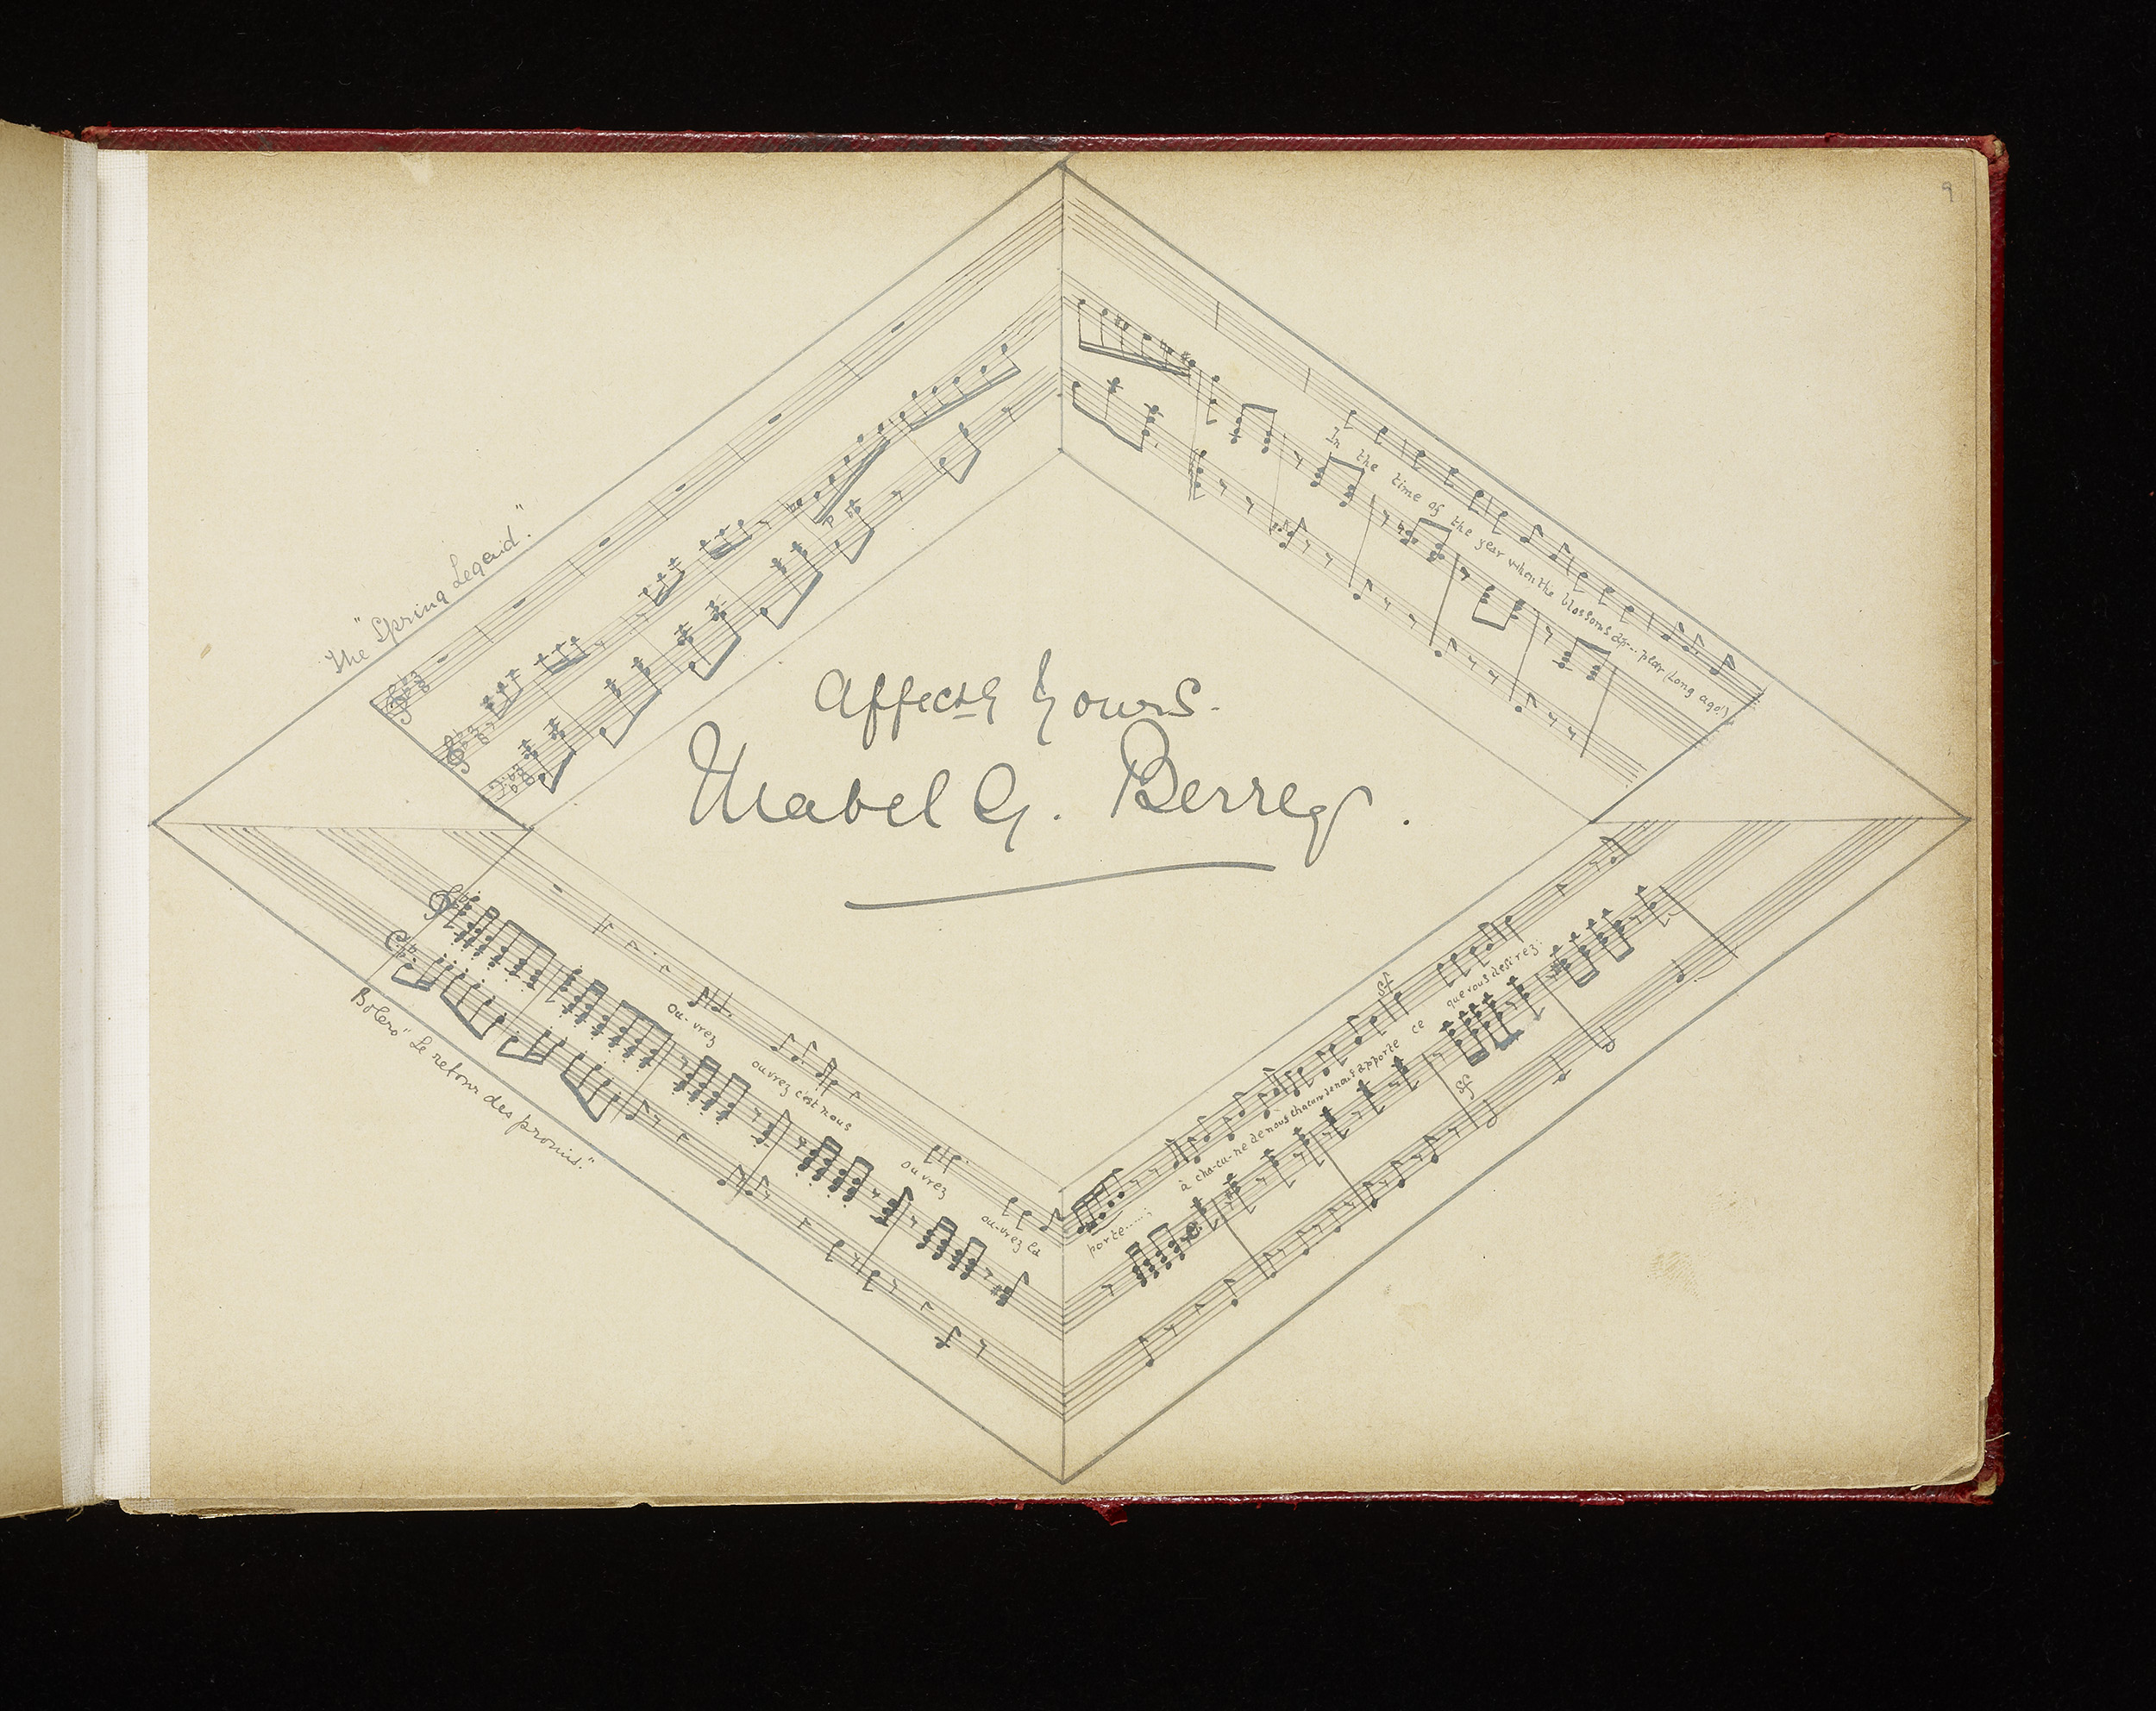 9
The "Spring Legend."
In the time of the year when the blossoms ap-- pear (Long ago!)
Affectly Yours.
Mabel G. Berrey.
Bolero "Le retour des promis."
ou-vrez
ouvrez c'est nous
ouvrez
ou-vrez la
porte.....;
à cha-cu-ne de nous chacun de nous apporte ce
que vous desirez:
sf
sf